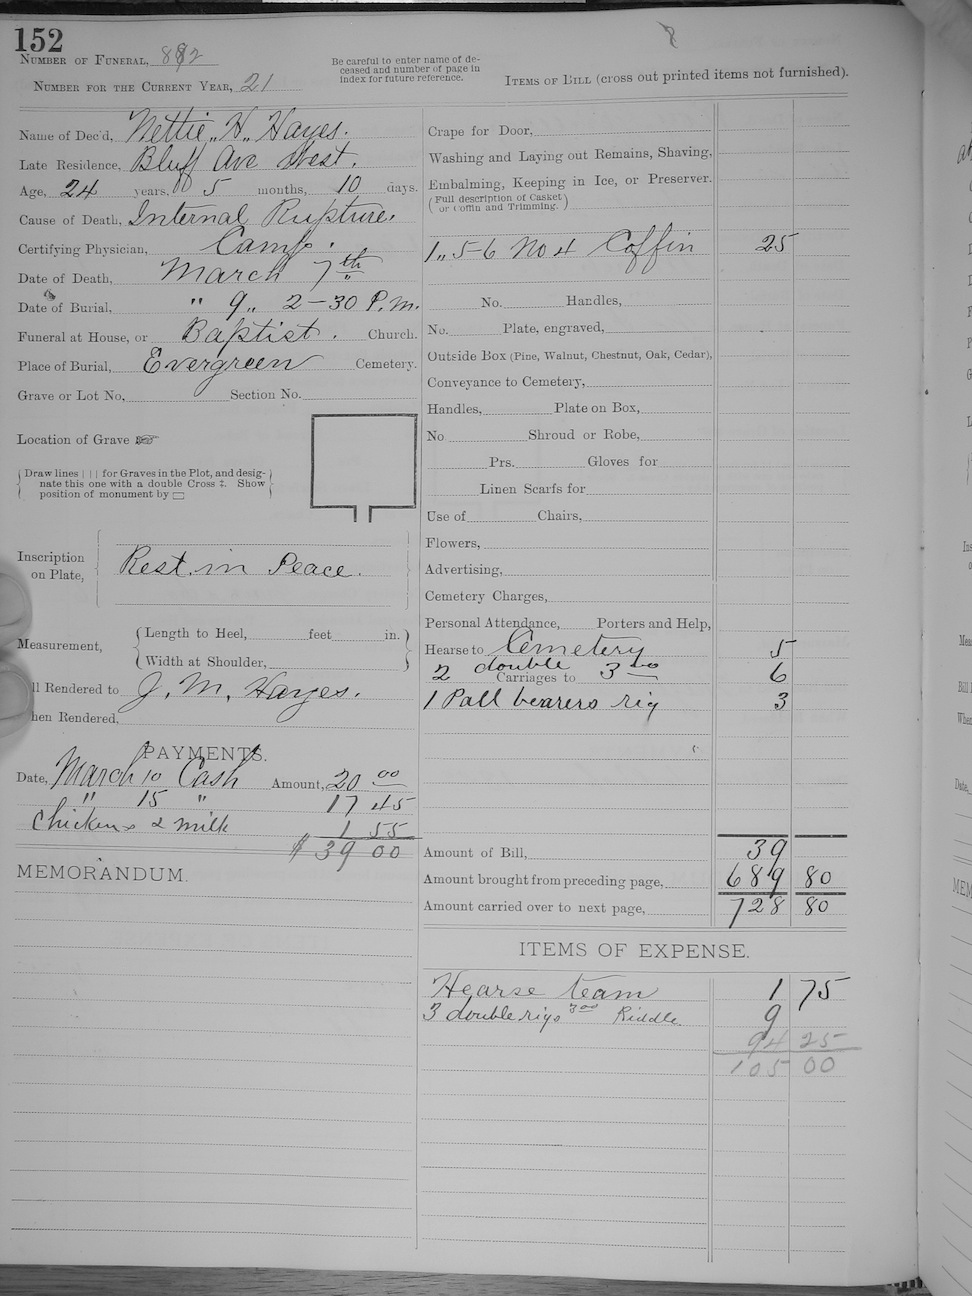 152
Number of Funeral, 892
Number for the Current Year, 21
Be careful to enter name of de-
ceased and number of page in
index for future reference.
Items of Bill (cross out printed items not furnished).
Name of Dec'd, Nettie „ H „ Hayes.
Late Residence, Bluff Ave West.
Age, 24 years. 5 months, 10 days.
Cause of Death, Internal Rupture.
Certifying Physician, Camp.
Date of Death, March 7th
Date of Burial, " 9„ 2-30 P.M.
Funeral at House, or Baptist. Church.
Place of Burial, Evergreen Cemetery.
Grave or Lot No, Section No.
Location of Grave ☞
Draw lines | | | for Graves in the Plot, and desig-
nate this one with a double Cross ‡. Show
position of monument by ▭
Inscription
on Plate, Rest in Peace.
Measurement, Length to Heel, feet in.
Width at Shoulder,
ll Rendered to J. M. Hayes.
hen Rendered,
PAYMENTS.
Date, March 10 Cash Amount, 20 00
" 15 " 17 45
Chickens & milk 1 55
$ 39 00
MEMORANDUM.
Crape for Door,
Washing and Laying out Remains, Shaving,
Embalming, Keeping in Ice, or Preserver.
(Full description of Casket
or Coffin and Trimming.)
1„ 5-6 No 4 Coffin 25
No. Handles,
No. Plate, engraved,
Outside Box (Pine, Walnut, Chestnut, Oak, Cedar),
Conveyance to Cemetery,
Handles, Plate on Box,
No Shroud or Robe,
Prs. Gloves for
Linen Scarfs for
Use of Chairs,
Flowers,
Advertising,
Cemetery Charges,
Personal Attendance, Porters and Help,
Hearse to Cemetery 5
2 double Carriages to 3 00 6
1 Pall bearers rig 3
Amount of Bill, 39
Amount brought from preceding page, 689 80
Amount carried over to next page, 728 80
ITEMS OF EXPENSE.
Hearse team 1 75
3 double rigs 3 00 Riddle 9
94 25
105 00